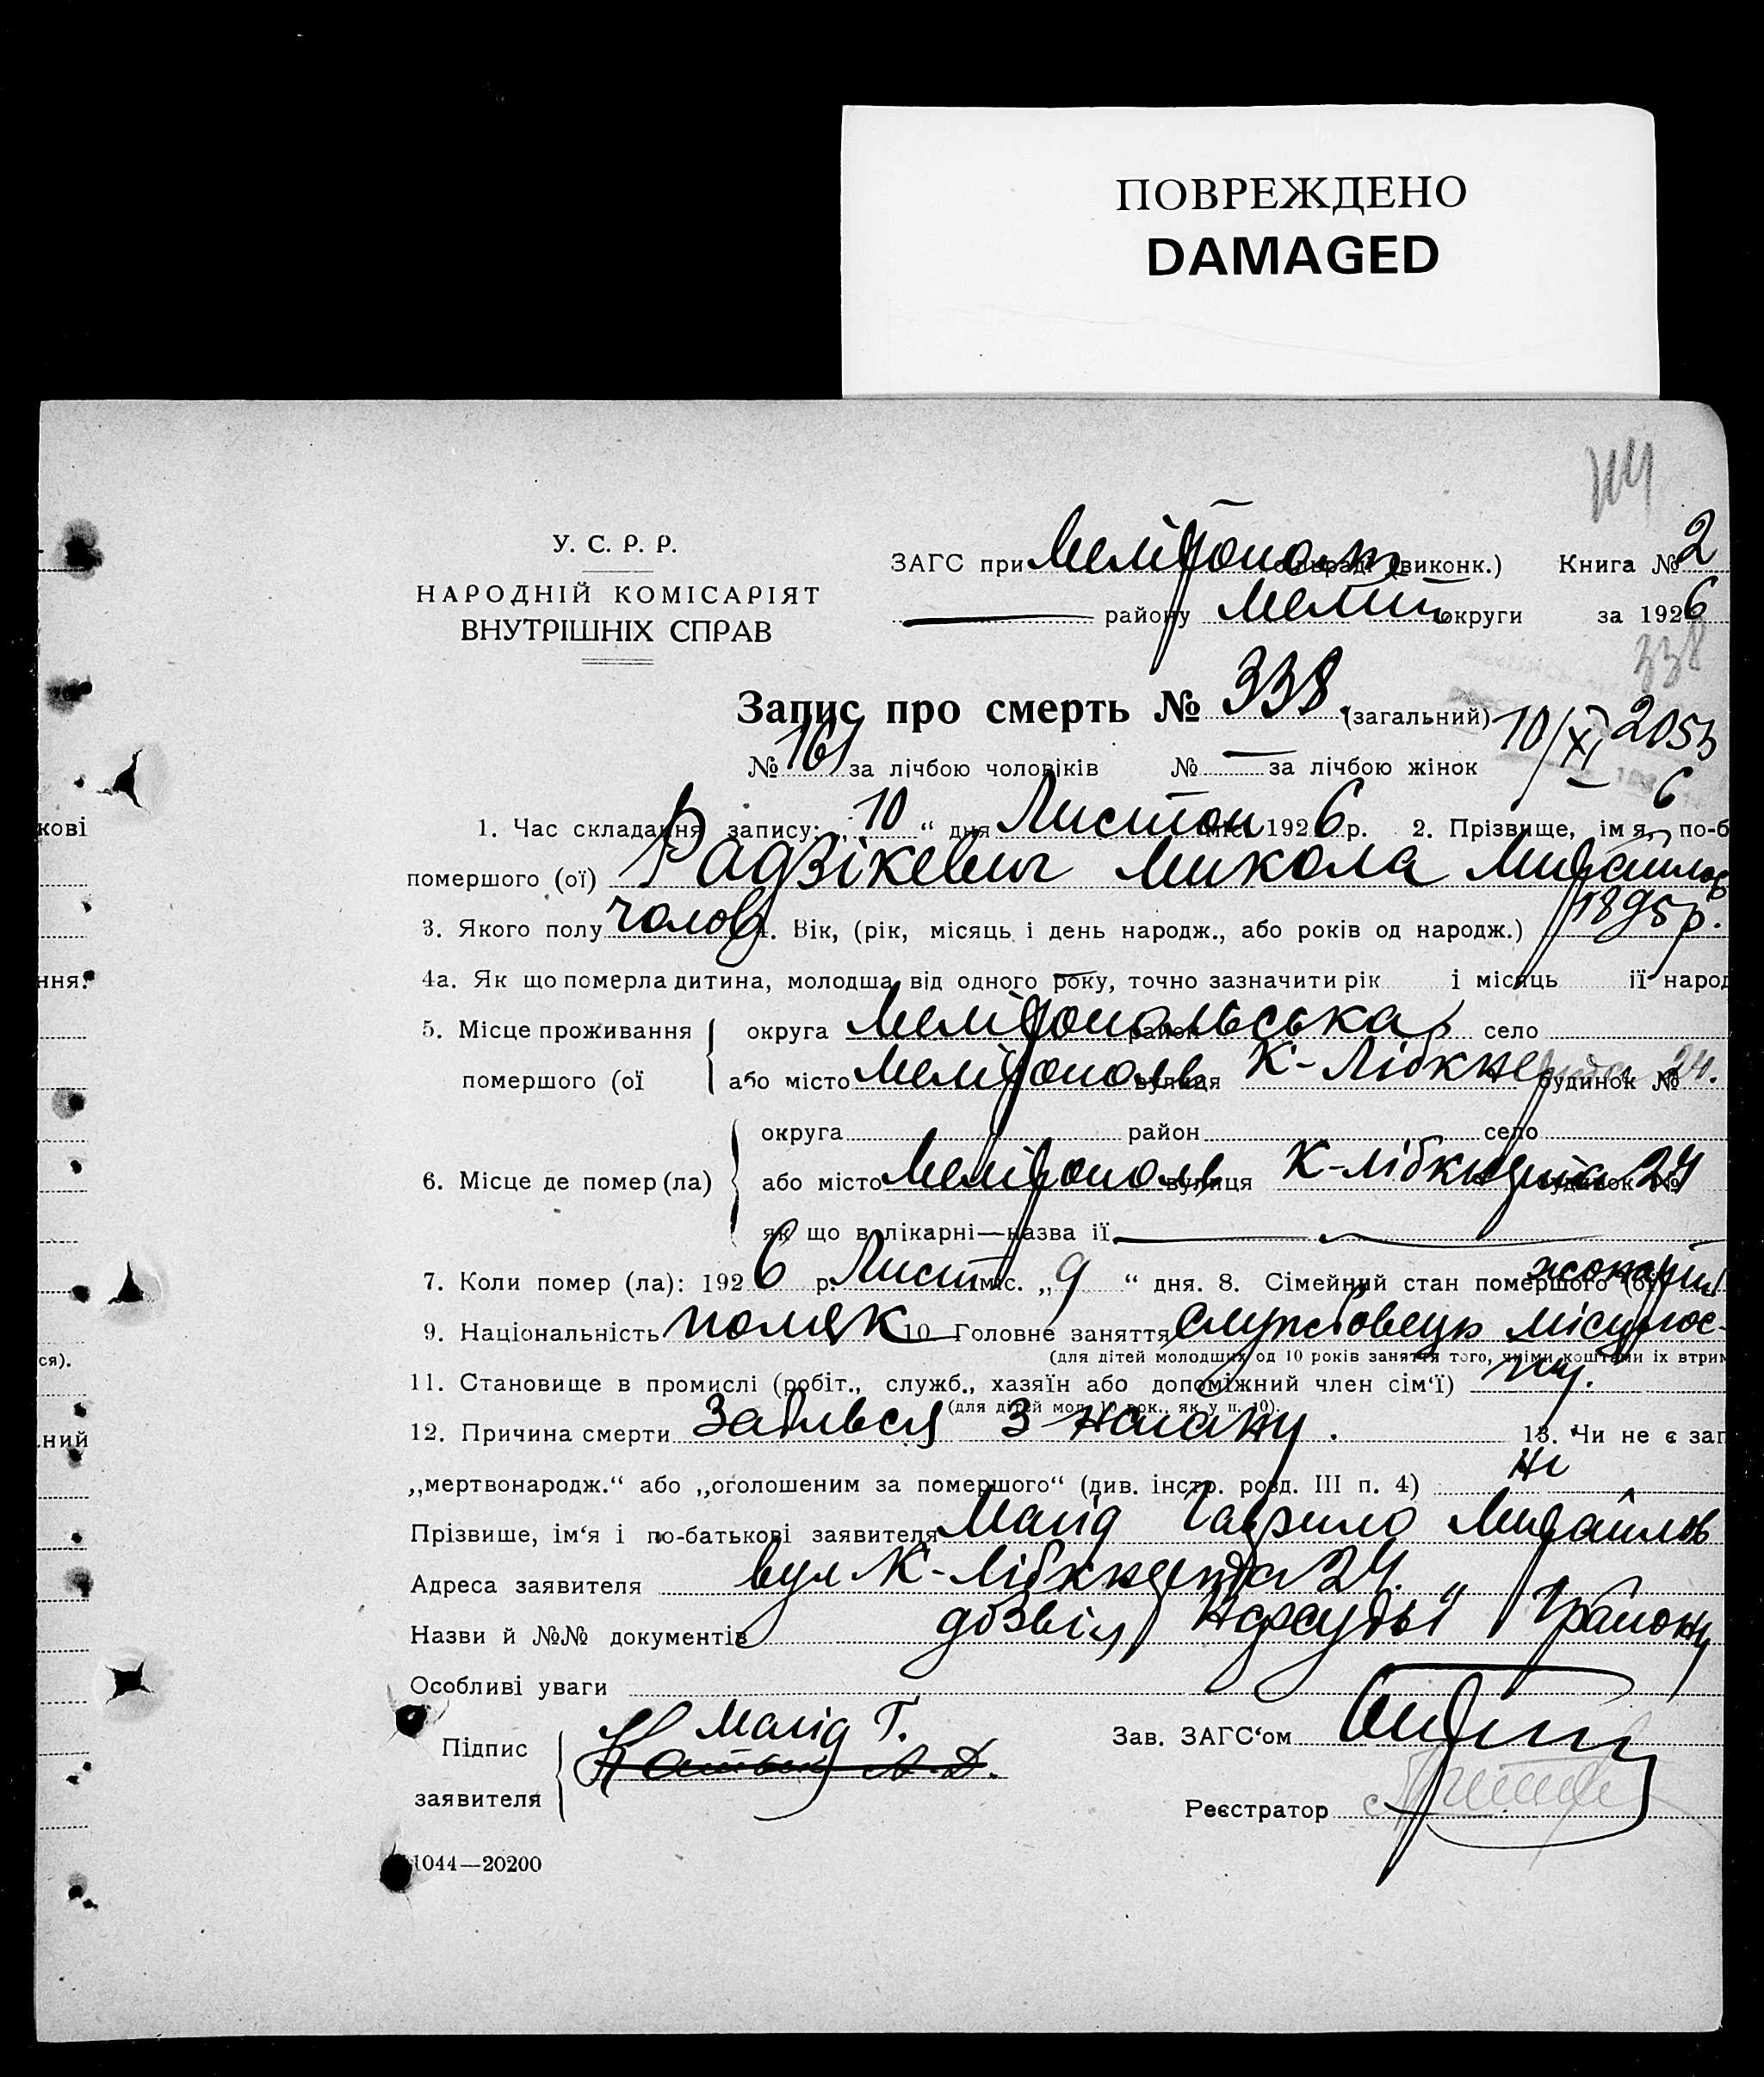 ПОВРЕЖДЕНО
DAMAGED
У. С. Р. Р.
НАРОДНІЙ КОМІСАРІЯТ
ВНУТРІШНІХ СПРАВ
ЗАГС при Мелітопол (виконк.) Книга № 2
району Меліт округи за 1926
338
Запис про смерть № 338. (загальний) 10/XI 2053
№ 161 за лічбою чоловіків № — за лічбою жінок 6
1. Час складання запису: „10“ дня Листоп міс. 1926 р. 2. Прізвище, імя, по-б
помершого (ої) Радзікевич Микола Михайлов
3. Якого полу чолов 4. Вік, (рік, місяць і день народж., або років од народж.) 1895 р.
4а. Як що померла дитина, молодша від одного року, точно зазначити рік і місяць її народ
5. Місце проживання округа Мелітопольська район село
помершого (ої або місто Мелітополь вулиця К-Лібкнехта будинок № 24.
округа район село
6. Місце де помер (ла) або місто Мелітополь вулиця К-Лібкнехта будинок № 24
як що в лікарні—назва її
7. Коли помер (ла): 1926 р. Лист міс. „9“ дня. 8. Сімейний стан помершого (ої) жонатий
9. Національність поляк 10. Головне заняття службовець
(для дітей молодших од 10 років заняття того, чиїми коштами їх втрим
11. Становище в промислі (робіт., служб., хазяїн або допоміжний член сім‘ї)
(для дітей мол. 10 рок., як у п. 10).
12. Причина смерти Забився з нагану. 13. Чи не є зап
„мертвонародж.“ або „оголошеним за помершого“ (див. інстр. розд. III п. 4) ні
Прізвище, ім‘я і по-батькові заявителя Магід Гаврило Михайлов
Адреса заявителя вул К-Лібкнехта 24.
Назви й №№ документів дозвіл Нарсудьї 1 району
Особливі уваги
Підпис Магід Г. Зав. ЗАГС‘ом
заявителя Реєстратор
1044—20200
кові
ння.
ся).
ний